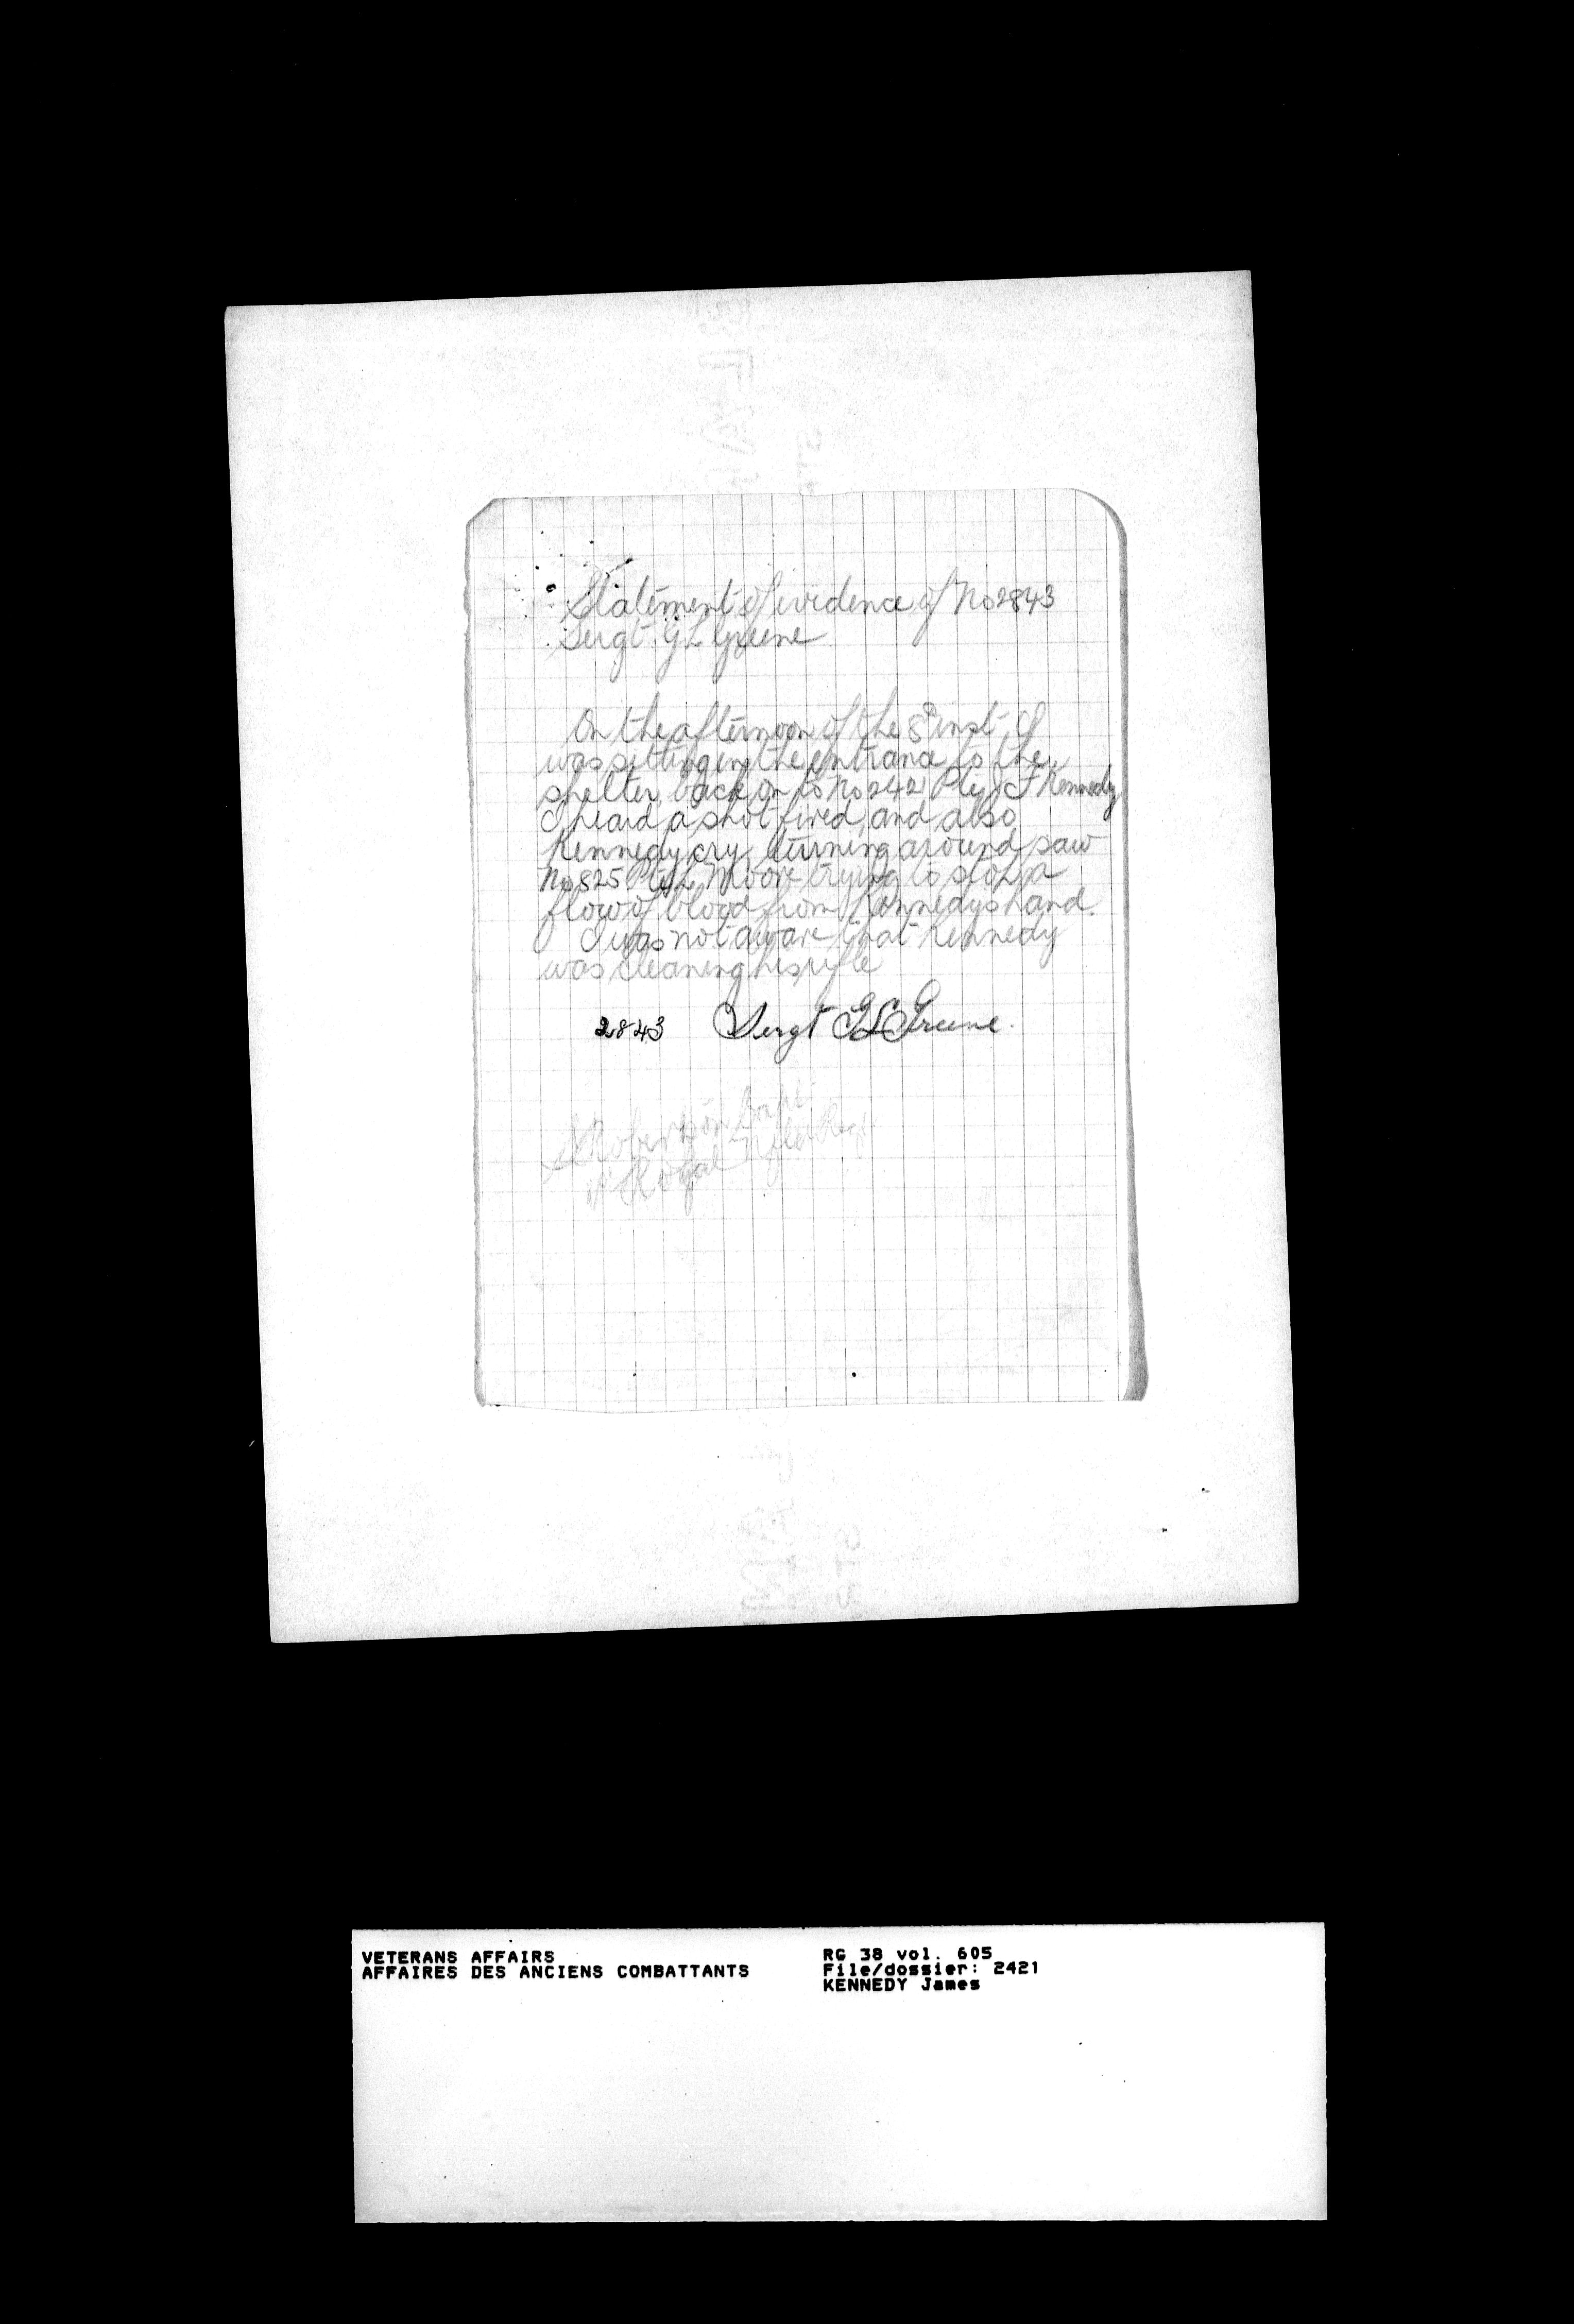 Statement of evidence of No 2843
Sergt. G L Greene
On the afternoon of the 8th inst. I
was sitting in the entrance to the
shelter, back on to No 2421 Pte J F Kennedy
I heard a shot fired, and also
Kennedy cry, turning around saw
No 825 Pte L Moore trying to stop a
flow of blood from Kennedys hand.
I was not aware that Kennedy
was cleaning his rifle
2843 Sergt G L Greene.
Robertson Capt.
Royal Rifle Regt.
VETERANS AFFAIRS
AFFAIRES DES ANCIENS COMBATTANTS
RG 38 vol. 605
File/dossier: 2421
KENNEDY James